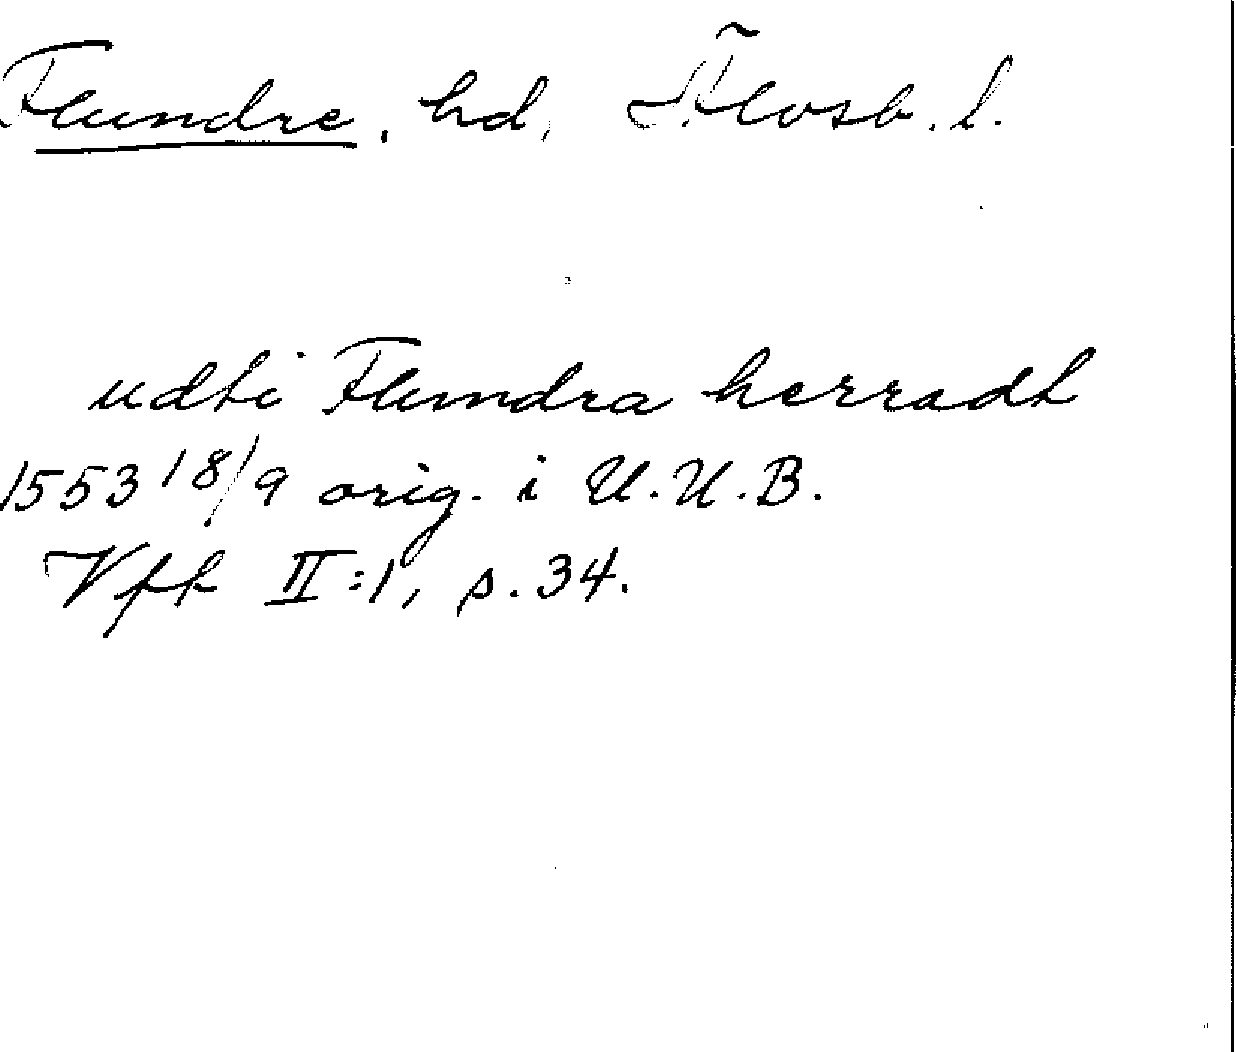 Flundre, hd, Älvsb. l.
udti Flundra herradt
1553 18/9 orig. i U.U.B.
Vff II:1, s. 34.